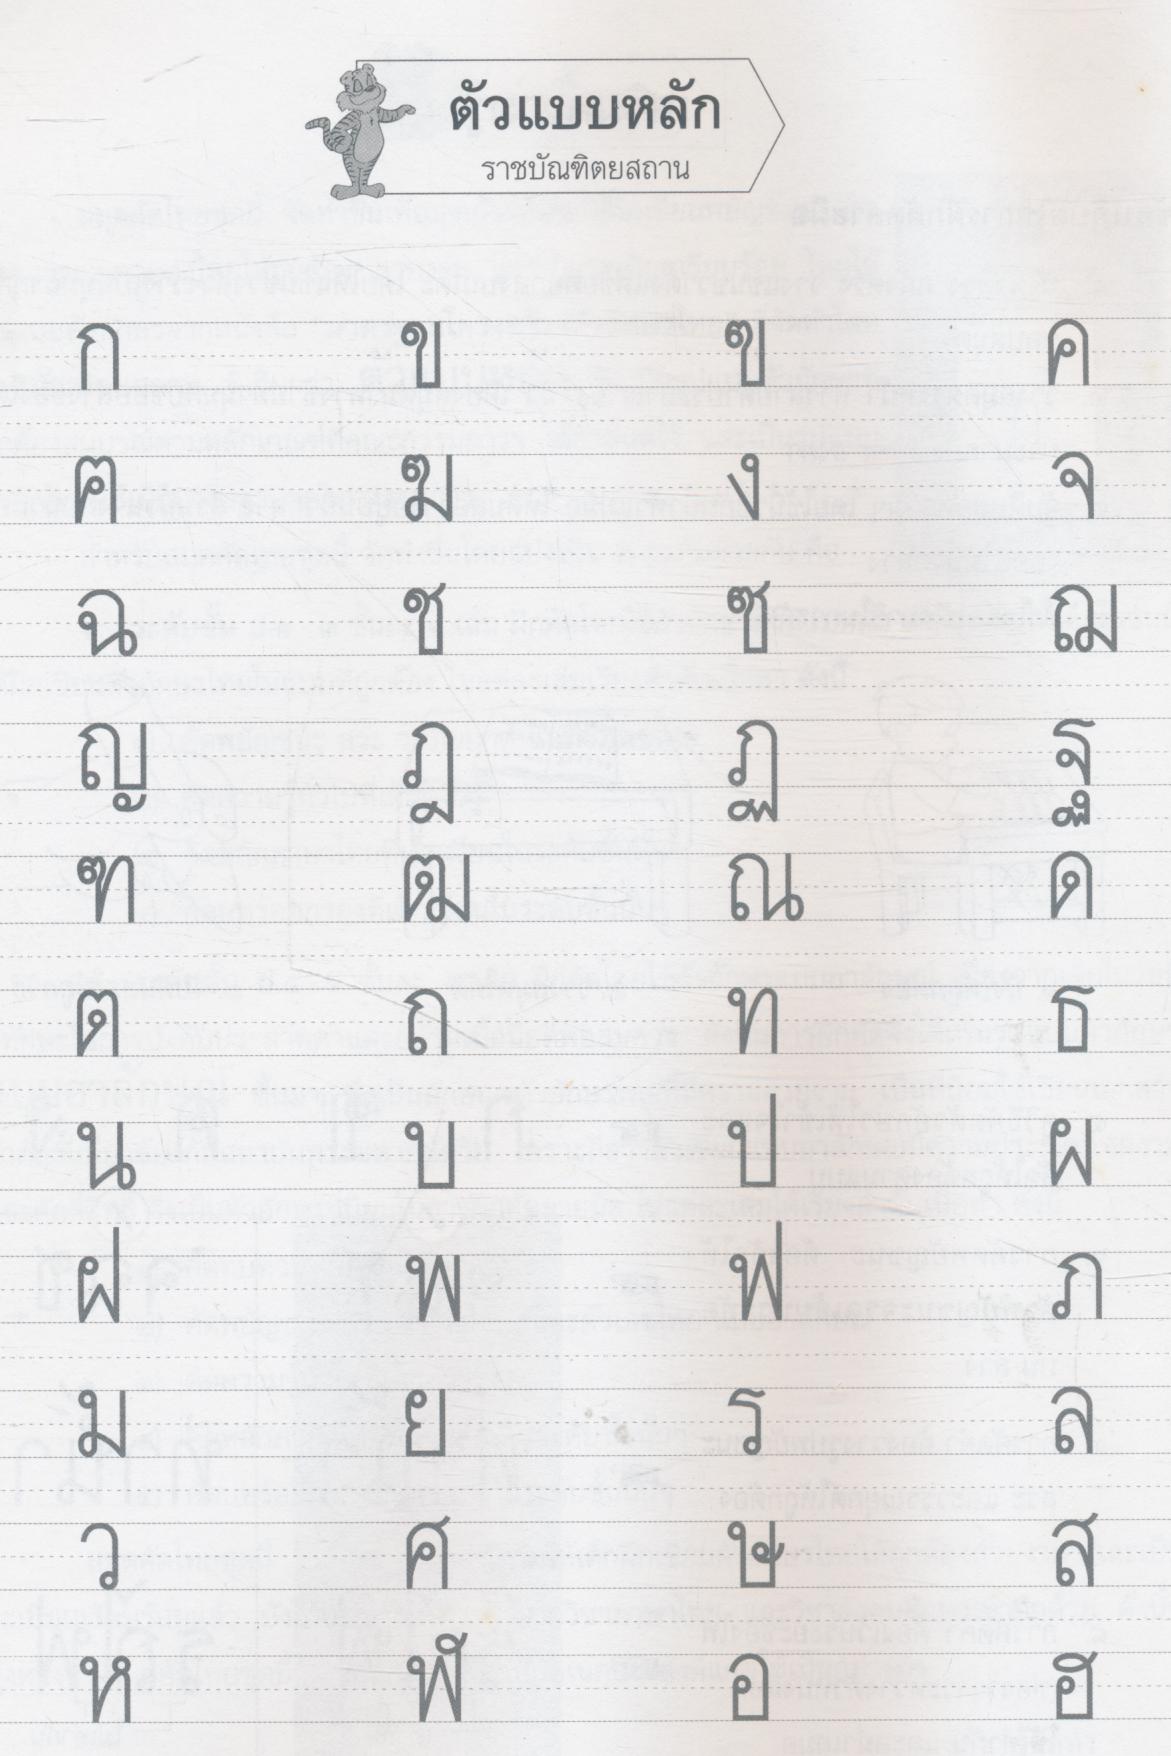 ตัวแบบหลัก
ราชบัณฑิตยสถาน
ก ข ฃ ค
ฅ ฆ ง จ
ฉ ช ซ ฌ
ญ ฎ ฏ ฐ
ฑ ฒ ณ ด
ต ถ ท ธ
น บ ป ผ
ฝ พ ฟ ภ
ม ย ร ล
ว ศ ษ ส
ห ฬ อ ฮ